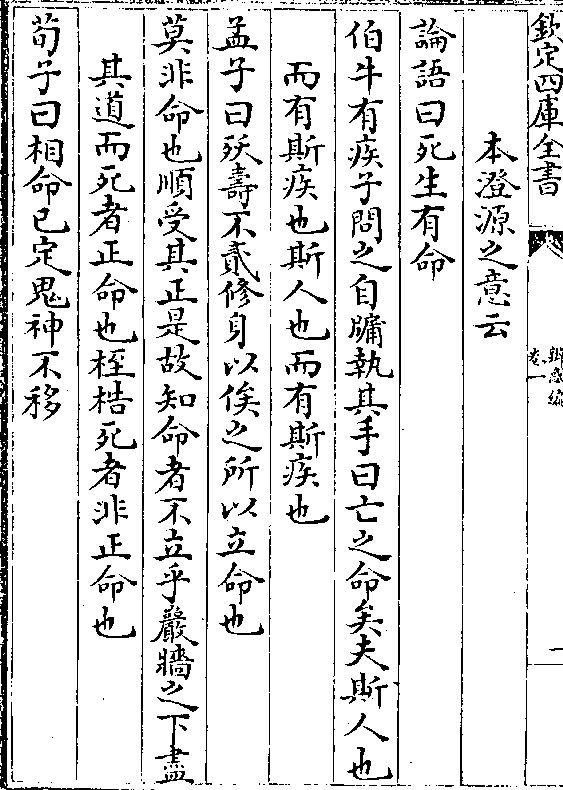 欽定四庫全書
辨惑編
卷一
一
本澄源之意云
論語曰死生有命
伯牛有疾子問之自牖執其手曰亡之命矣夫斯人也
而有斯疾也斯人也而有斯疾也
孟子曰殀壽不貳修身以俟之所以立命也
莫非命也順受其正是故知命者不立乎巖牆之下盡
其道而死者正命也桎梏死者非正命也
荀子曰相命已定鬼神不移